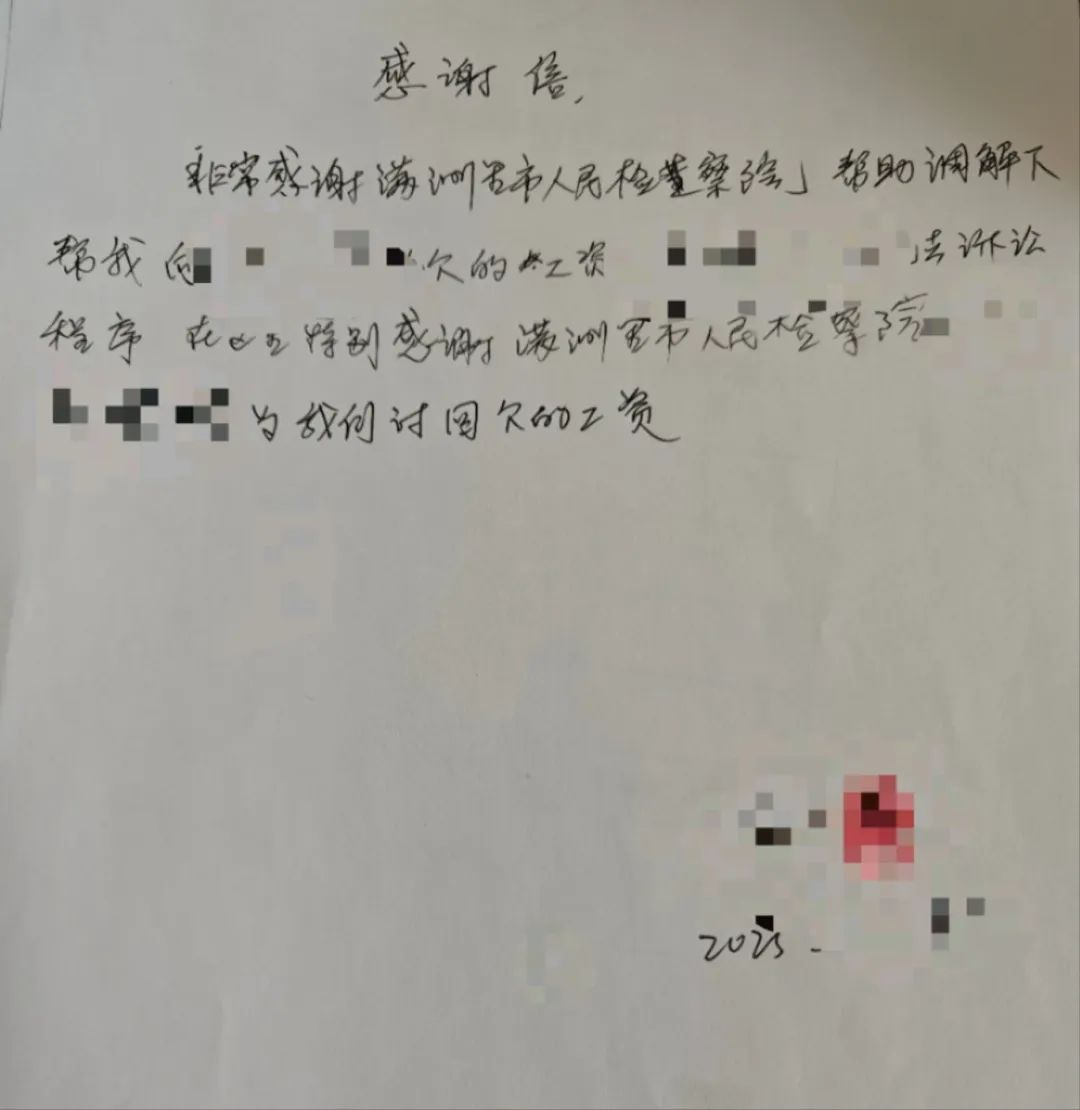 感谢信,
非常感谢满洲里市人民检查察院」帮助调解下
帮我向 欠的工资 法诉讼
程序 在此 特别感谢满洲里市人民检察院
为我们讨回欠的工资
2025.